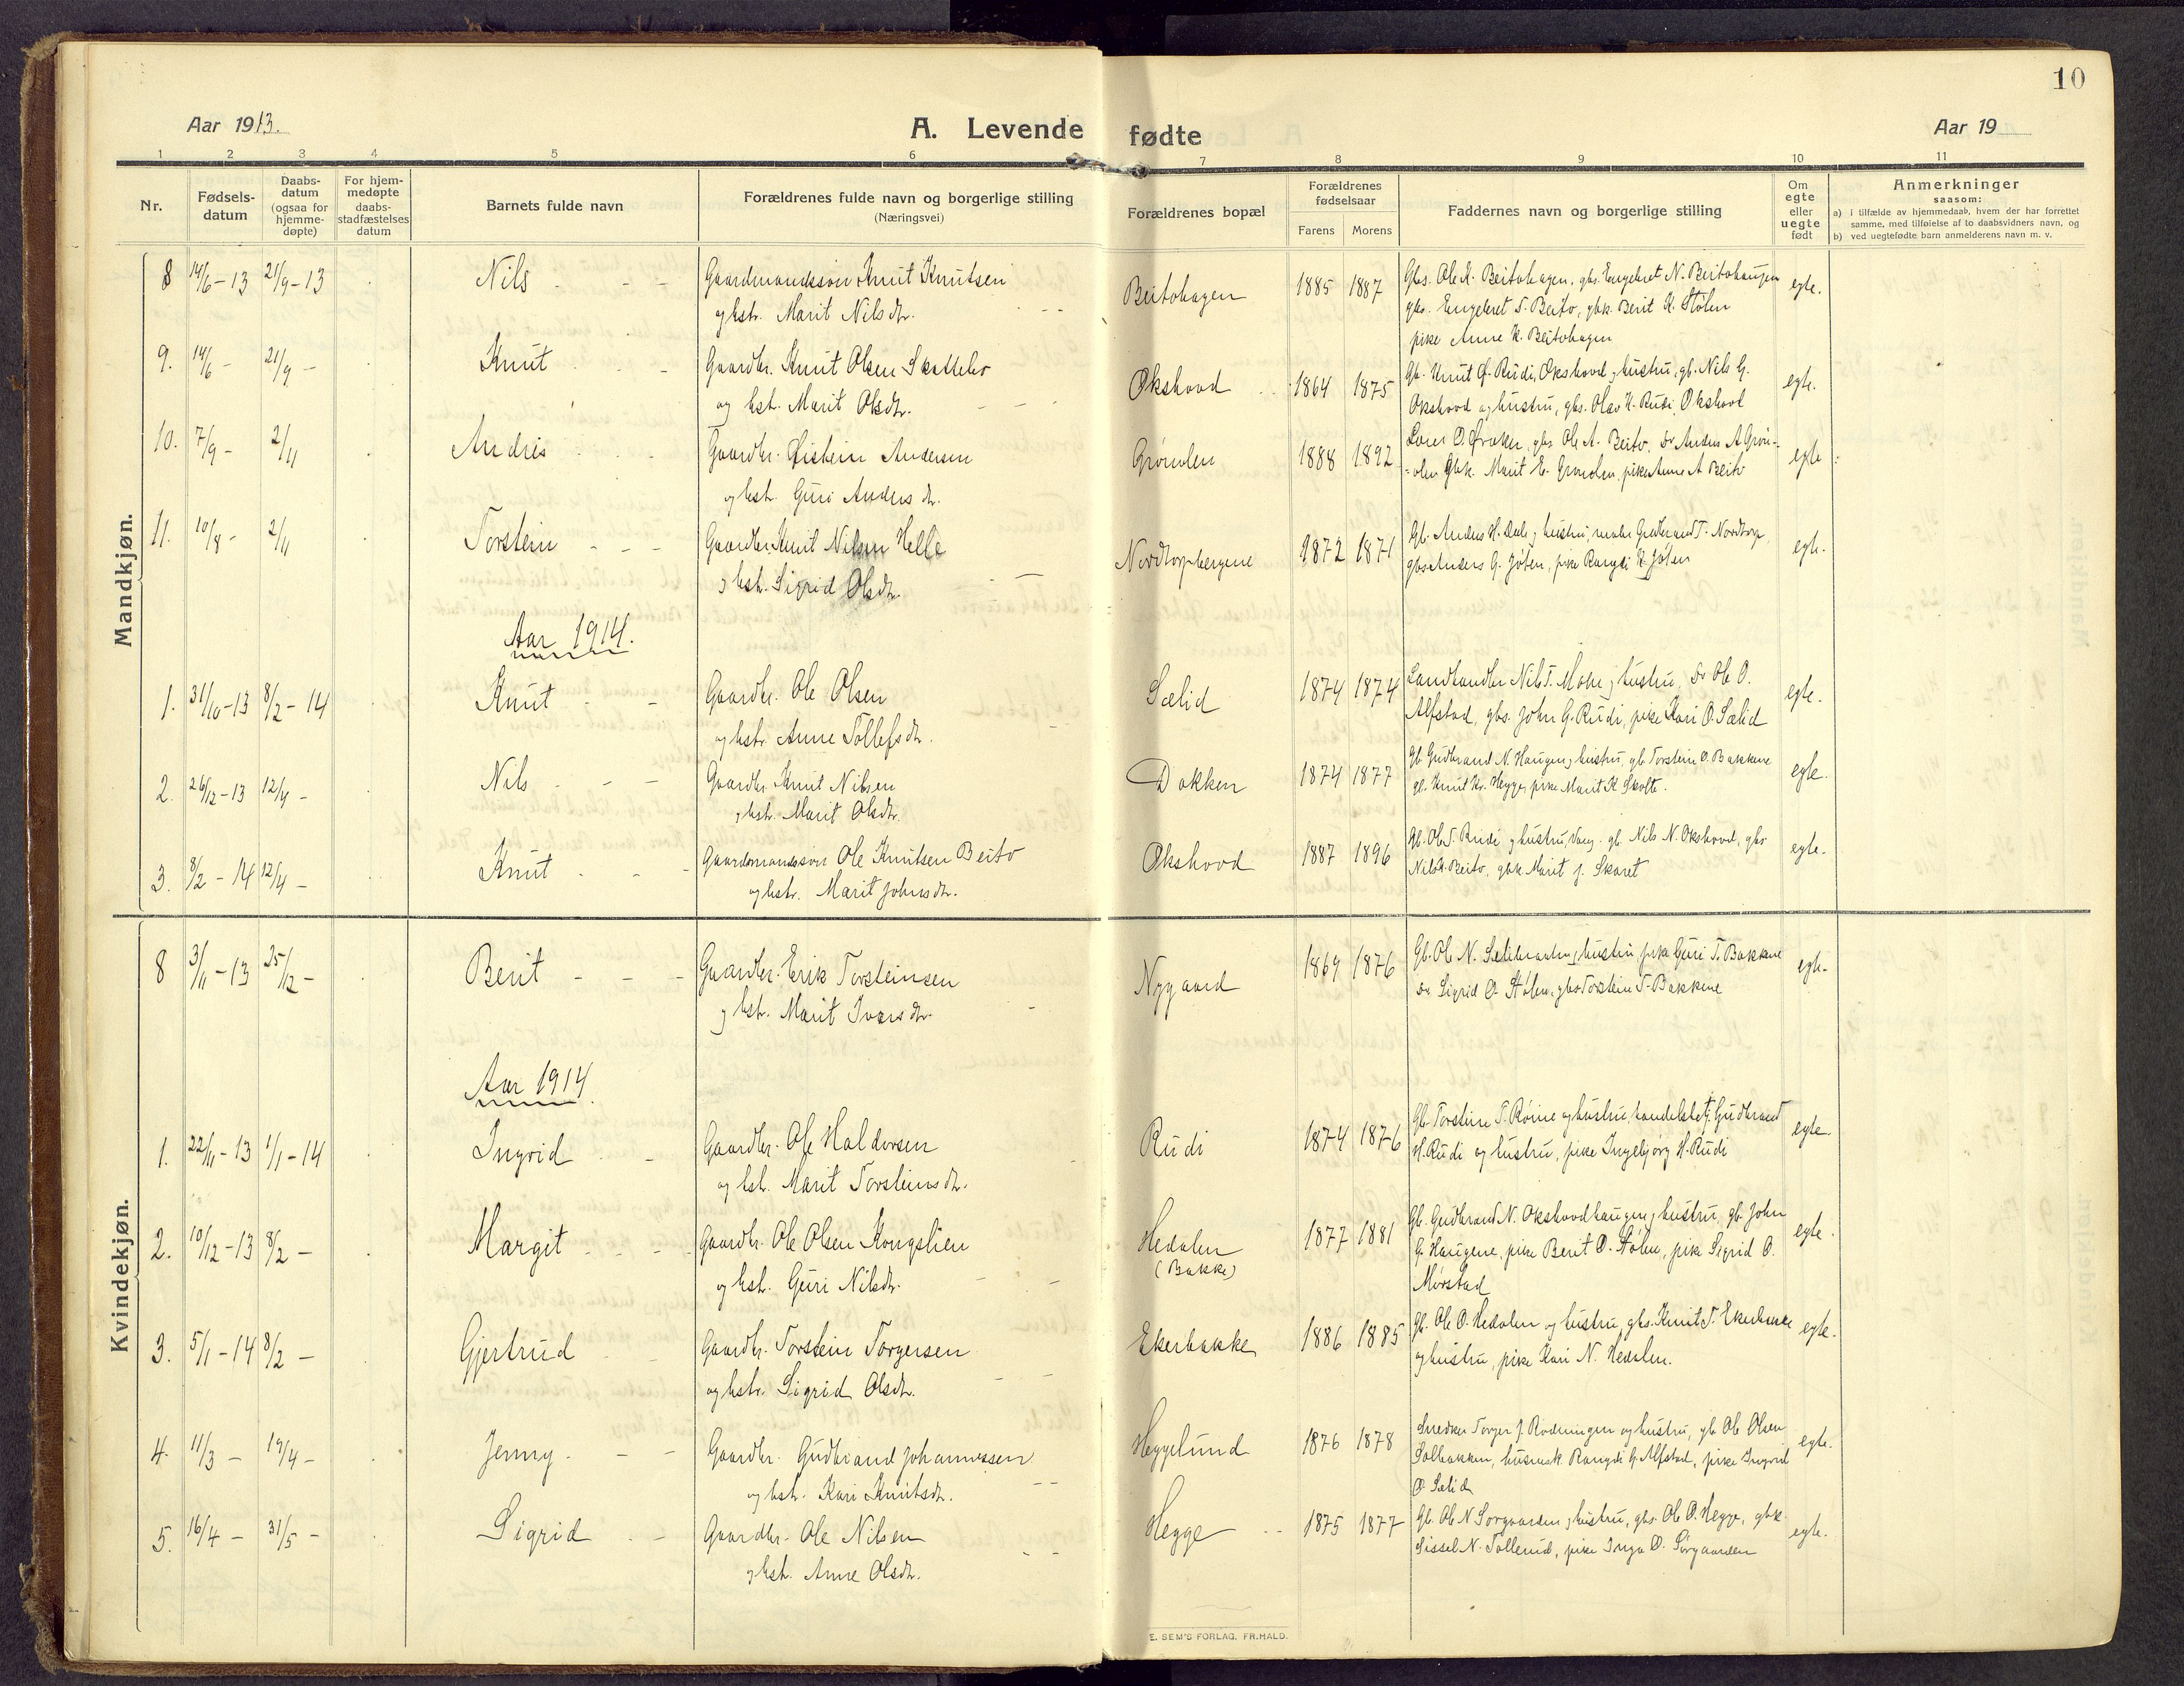 10
Aar 1913.
A. Levende fødte
Aar 19
1 2 3 4 5 6 7 8 9 10 11
Nr.
Fødsels-
datum
Daabs-
datum
(ogsaa for
hjemme-
døpte)
For hjem-
medøpte
daabs-
stadfæstelses
datum
Barnets fulde navn
Forældrenes fulde navn og borgerlige stilling
(Næringsvei)
Forældrenes bopæl
Forældrenes
fødselsaar
Farens Morens
Faddernes navn og borgerlige stilling
Om
egte
eller
uegte
født
Anmerkninger
saasom:
a) i tilfælde av hjemmedaab, hvem der har forrettet
samme, med tilføielse af to daabsvidners navn, og
b) ved uegtefødte barn anmelderens navn m. v.
Mandkjøn.
8 14/6-13 21/9-13 Nils Gaardmandssøn Knut Knutsen
og hst. Marit Nilsdtr.
Beitohagen 1885 1887 Gbs. Ole K. Beitohagen, gbs. Engebret N. Beitohaugen
gbs. Engebret T. Beito, gbk. Berit K. Stølen
pike Anne K. Beitohagen
egte.
9. 14/6 - 21/9 - Knut Gaardbr. Knut Olsen Skattebo
og hst. Marit Olsdtr.
Økshovd 1864 1875 Gb. Knut O. Rudi, Økshovd og hustru, gb. Nils G.
Økshovd og hustru, gbs. Olav K. Rudi, Økshovd
egte.
10. 7/9 - 2/11 Andris Gaardbr. Øistein Andersen
og hst. Guri Andersdtr.
Grønolen 1888 1892 Ole A. Beito, Anders A Grøn-
=olen Gbk. Marit E. Grønolen, pike Anne A Beito
egte
11. 10/8 - 2/11 Torstein Gaardbr. Knut Nilsen Helle
og hst. Sigrid Olsdtr.
Nordtorpbergene 1872 1871 Gb. Anders H. og hustru, Gudbrand T. Nordtorp,
gbs Anders G. Jøten, pike Rangdi K. Jøten
egte.
Aar 1914.
1. 31/10-13 8/2-14 Knut Gaardbr. Ole Olsen
og hst. Anne Tollefsdtr.
Sælid 1874 1874 Landhandler Nils T. Mohn og hustru, Ole O.
Alfstad, gbs. John G. Rudi, pike Kari O. Sælid
egte.
2. 26/12-13 12/4 - Nils Gaardbr. Knut Nilsen
og hst. Marit Olsdtr.
Dokken 1874 1877 gb. Gudbrand N. Haugen og hustru, gb. Torstein O. Bakkene
gb. Knut Kr. Hegge, pike Marit K Skolte.
egte.
3. 8/2-14 12/4 - Knut Gaardmandssøn Ole Knutsen Beito
og hst. Marit Johnsdtr.
Økshovd 1887 1896 Gb. Ole T. Rudi og hustru, gb. Nils N. Økshovd, gbs
Nils K. Beito, gbk. Marit J. Skaret
egte.
Kvindekjøn.
8 3/11-13 25/12 - Berit Gaardbr. Erik Torsteinsen
og hst. Marit Ivarsdtr.
Nygaard 1869 1876 Gb. Ole N. og hustru, pike Guri T. Bakkene
Sigrid O. Stølen, gbs Torstein T. Bakkene
egte.
Aar 1914.
1. 22/11-13 1/1-14 Ingrid Gaardbr. Ole Haldorsen
og hst. Marit Torsteinsdtr.
Rudi 1874 1876 Gb. Torstein T. Røine og hustru, handelsbetj. Gudbrand
H. Rudi og hustru, pike Ingebjørg H. Rudi
egte.
2. 10/12-13 8/2 - Margit Gaardbr. Ole Olsen Kongslien
og hst. Guri Nilsdtr.
Hedalen
(Bakke)
1877 1881 Gb. Gudbrand N. Økshovdhaugen og hustru, gb. John
G. Haugene, pike Berit O. Stølen, pike Sigrid O.
Mørstad
egte.
3. 5/1-14 8/2 - Gjertrud Gaardbr. Torstein Torgersen
og hst. Sigrid Olsdtr.
Ekerbakke 1886 1885 Gb. Ole O. Hedalen og hustru, gbs. Knut T. Ekerbakke
og hustru, pike Kari N. Hedalen.
egte.
4. 11/3 - 19/4 - Jenny Gaardbr. Gudbrand Johannessen
og hst. Kari Knutsdtr.
Heggelund 1876 1878 Snedker Torger J. Rodningen og hustru, gb. Ole Olsen
Solbakken, Rangdi G. Alfstad, pike Ingrid
O. Sælid
egte.
5. 16/4 - 31/5 - Sigrid Gaardbr. Ole Nilsen
og hst. Anne Olsdtr.
Hegge 1875 1877 Gb. Ole N Sørgaarden og hustru, gbs. Ole O. Hegge, gbk.
Sissel N. Tollerud, pike Inga O. Sørgaarden
egte.
E. SEM'S FORLAG. FR.HALD.